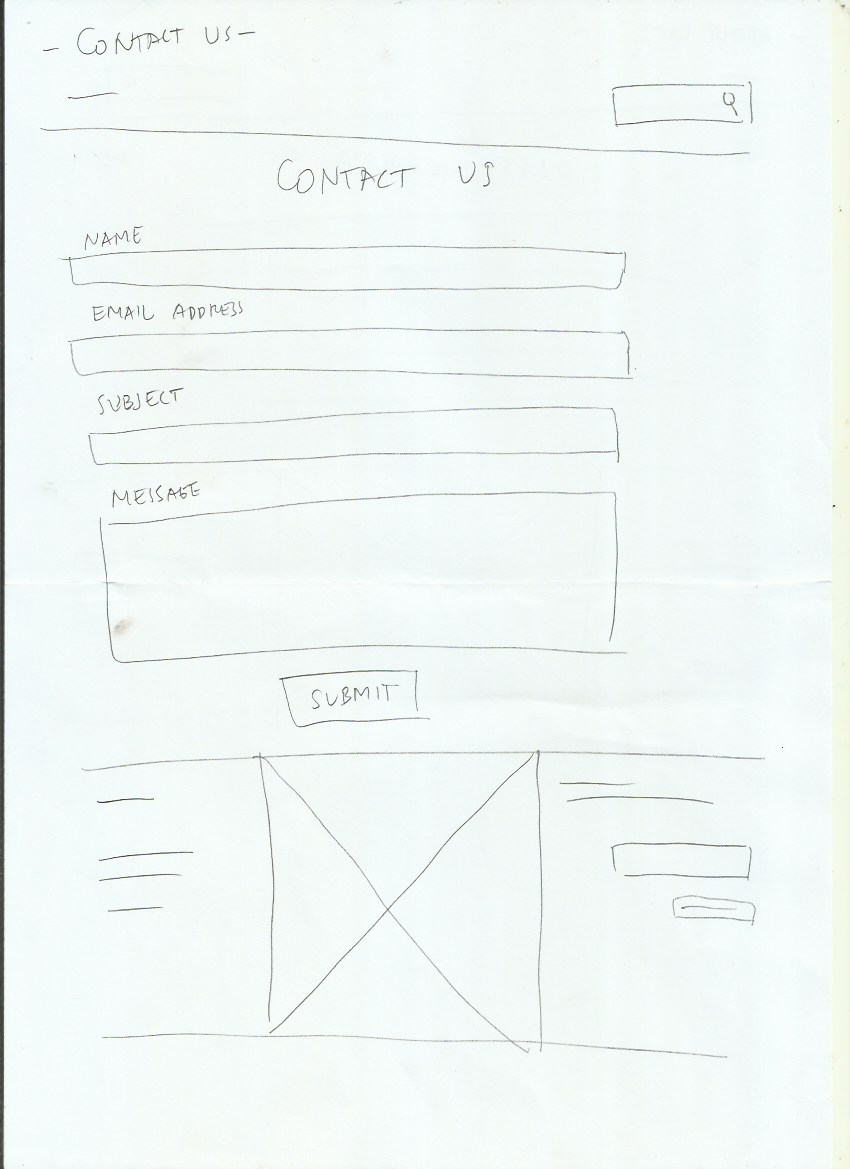 - CONTACT US -
CONTACT US
NAME
EMAIL ADDRESS
SUBJECT
MESSAGE
SUBMIT